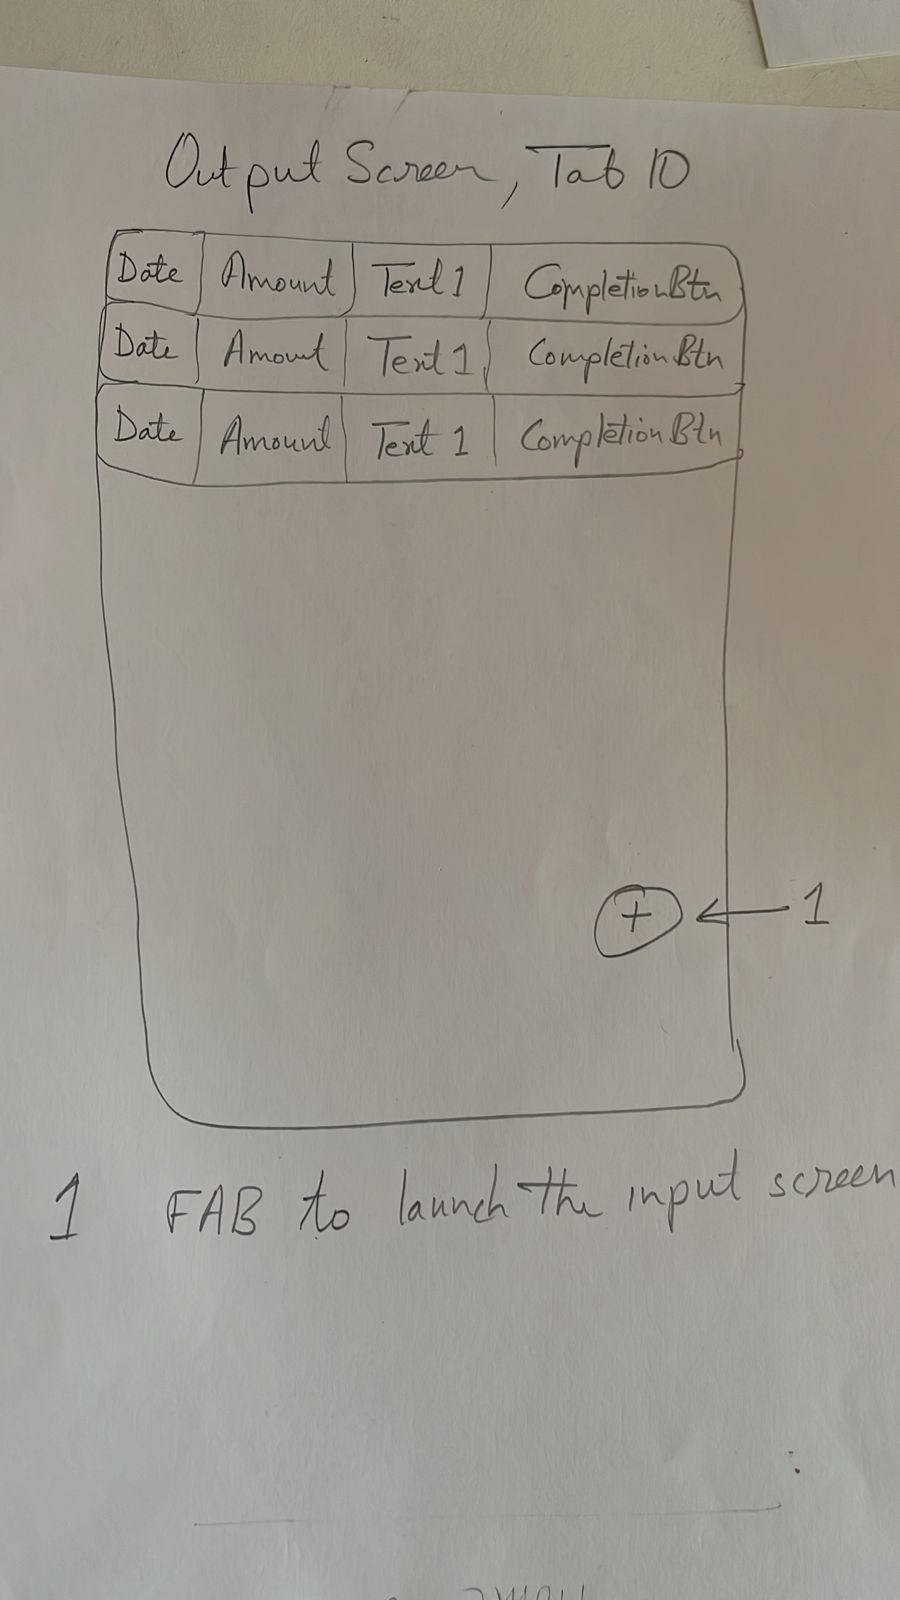 Output Screen, Tab 10
Date Amount Text 1 CompletionBtn
Date Amount Text 1 CompletionBtn
Date Amount Text 1 CompletionBtn
+ 1
1 FAB to launch the input screen